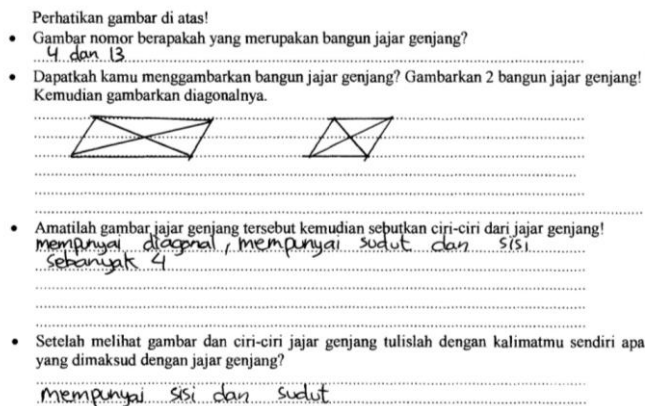 Perhatikan gambar di atas!
• Gambar nomor berapakah yang merupakan bangun jajar genjang?
4 dan 13
• Dapatkah kamu menggambarkan bangun jajar genjang? Gambarkan 2 bangun jajar genjang!
Kemudian gambarkan diagonalnya.
• Amatilah gambar jajar genjang tersebut kemudian sebutkan ciri-ciri dari jajar genjang!
mempunyai diagonal, mempunyai sudut dan sisi
sebanyak 4
• Setelah melihat gambar dan ciri-ciri jajar genjang tulislah dengan kalimatmu sendiri apa
yang dimaksud dengan jajar genjang?
mempunyai sisi dan sudut